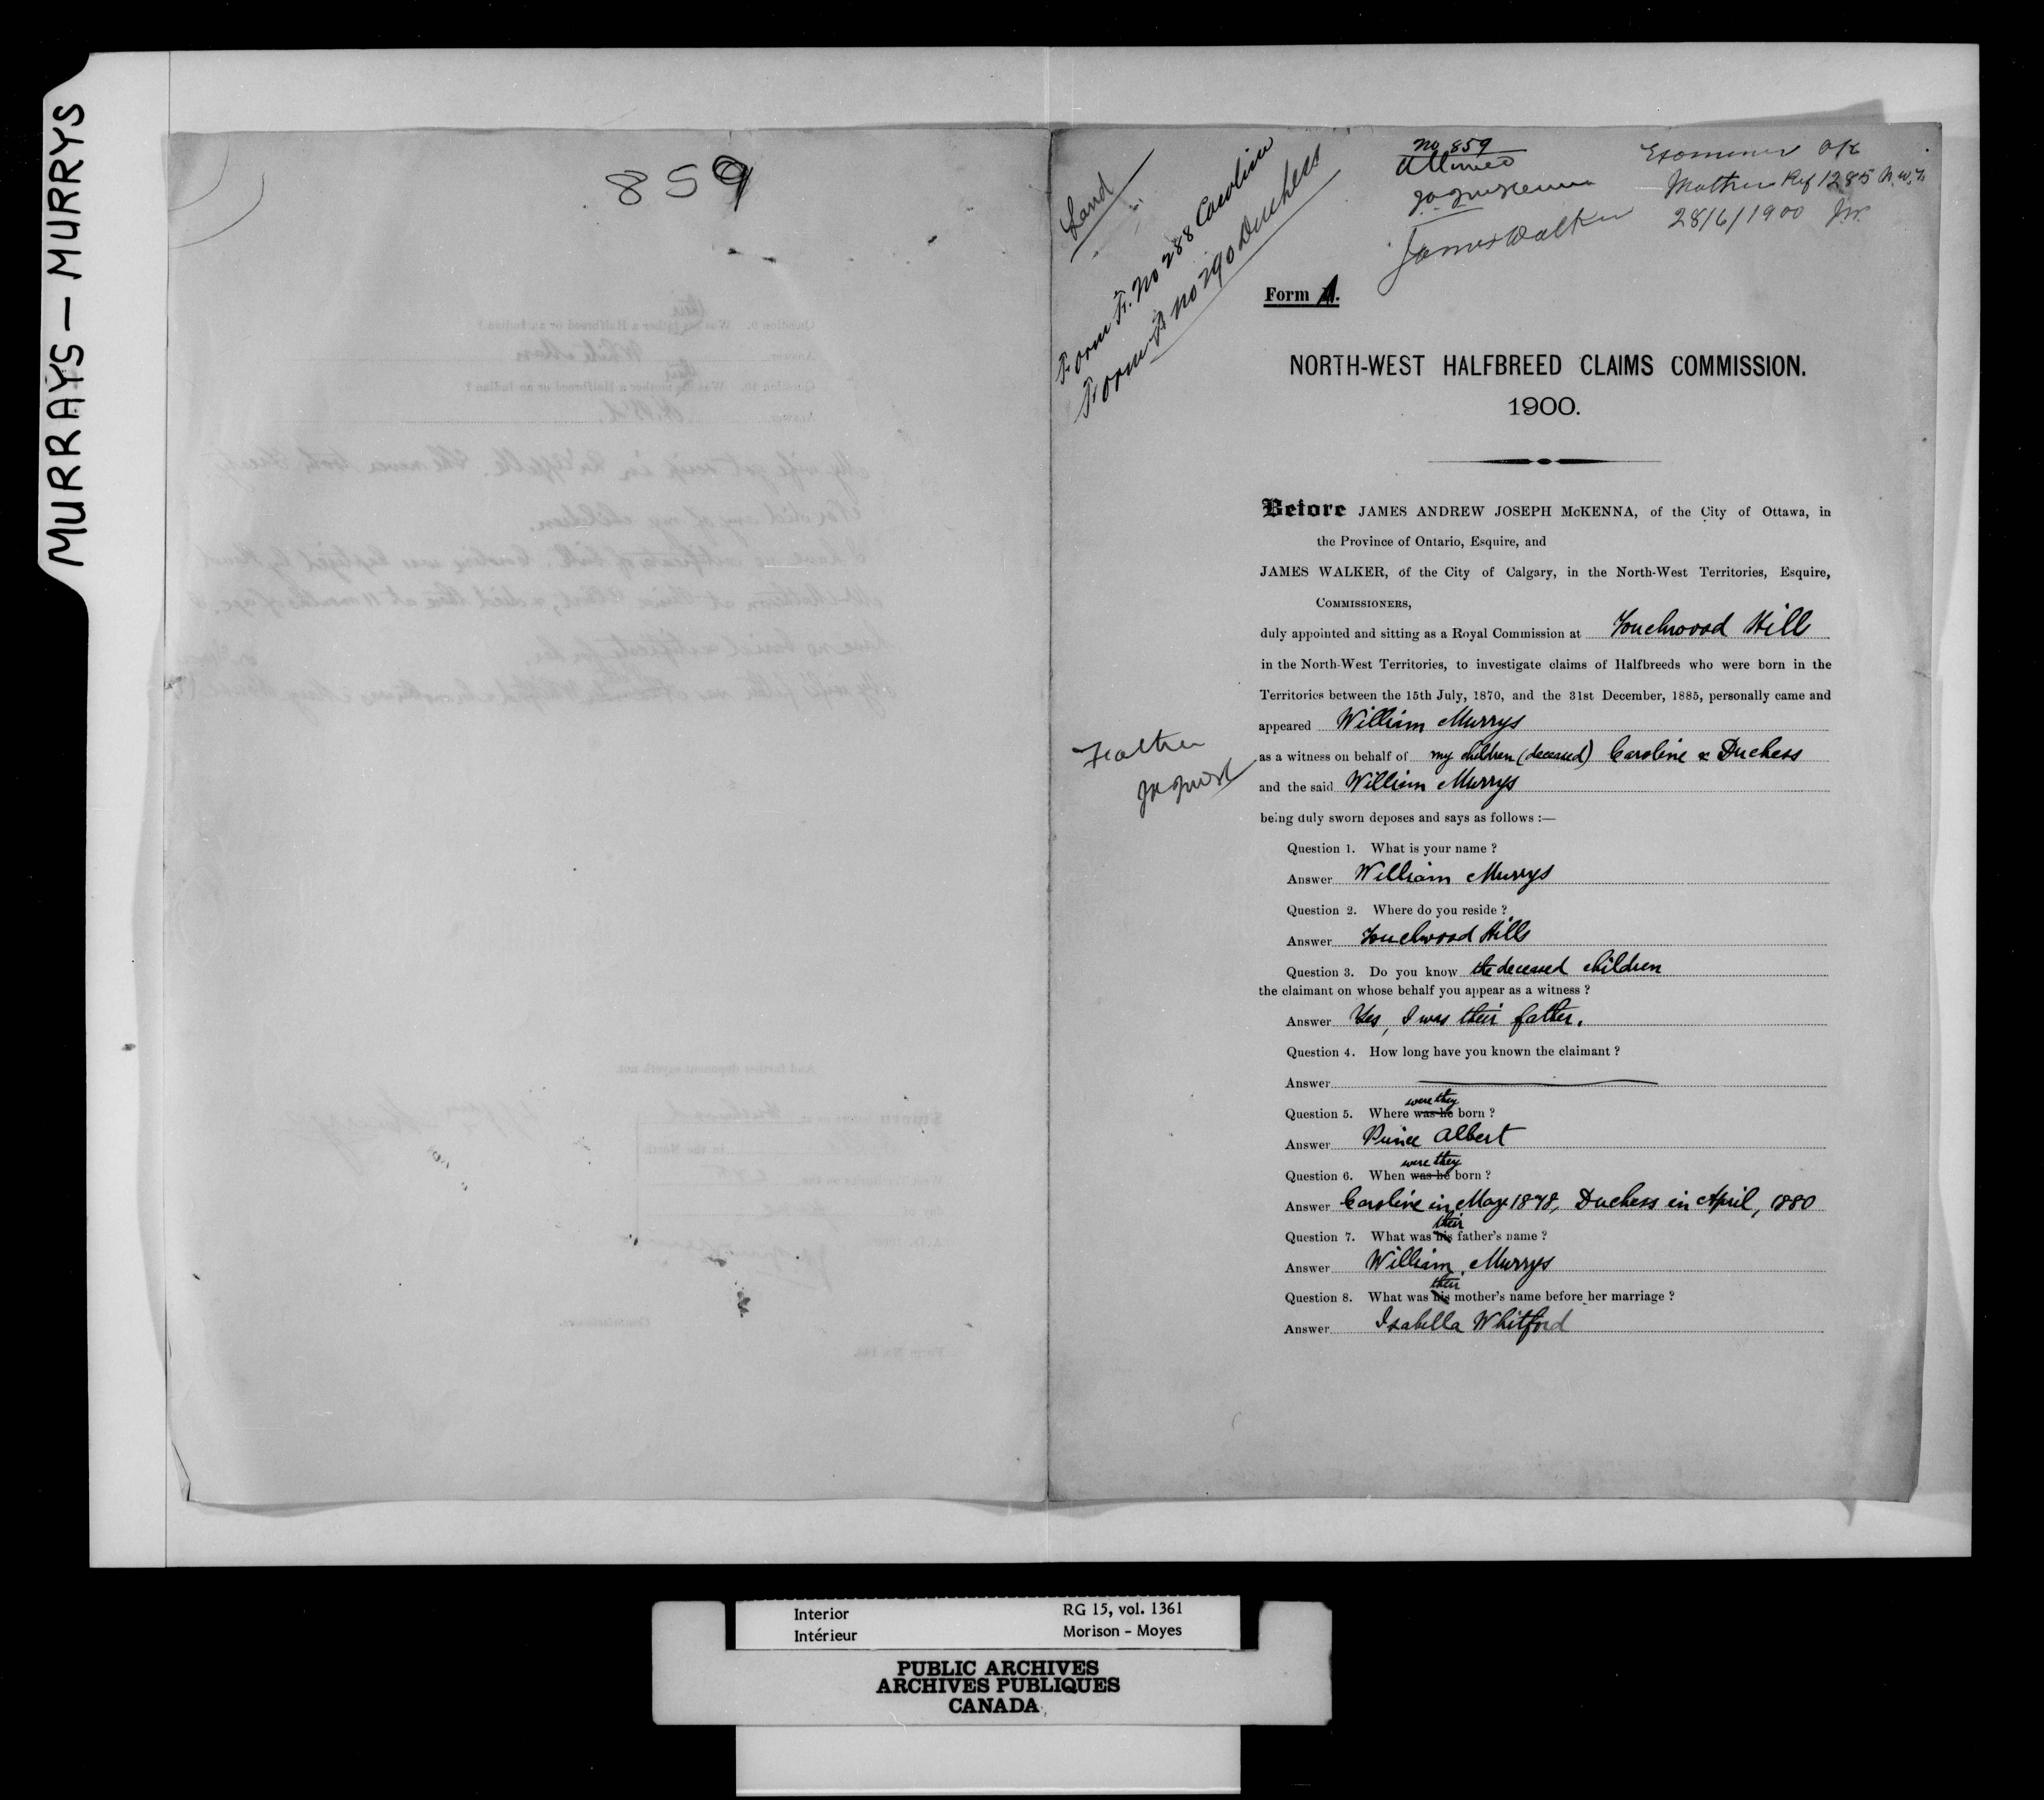 MURRAYS — MURRYS
859
Land
Form F. No 288 Caroline
Form F No 290 Duchess
No 859
Allowed
J.A.J. McKenna
James Walker
Examiner OK
Mother Ref 1285 N.W.T.
28/6/1900 J.W.
Form A.
NORTH-WEST HALFBREED CLAIMS COMMISSION.
1900.
Before JAMES ANDREW JOSEPH McKENNA, of the City of Ottawa, in
the Province of Ontario, Esquire, and
JAMES WALKER, of the City of Calgary, in the North-West Territories, Esquire,
COMMISSIONERS,
duly appointed and sitting as a Royal Commission at Touchwood Hill
in the North-West Territories, to investigate claims of Halfbreeds who were born in the
Territories between the 15th July, 1870, and the 31st December, 1885, personally came and
appeared William Murrys
Father
as a witness on behalf of my children (deceased) Caroline & Duchess
and the said William Murrys
being duly sworn deposes and says as follows :—
Question 1. What is your name ?
Answer William Murrys
Question 2. Where do you reside ?
Answer Touchwood Hills
Question 3. Do you know the deceased children
the claimant on whose behalf you appear as a witness ?
Answer Yes, I was their father.
Question 4. How long have you known the claimant ?
Answer
were they
Question 5. Where was he born ?
Answer Prince Albert
were they
Question 6. When was he born ?
Answer Caroline in May 1878, Duchess in April, 1880
their
Question 7. What was his father's name ?
Answer William Murrys
their
Question 8. What was his mother's name before her marriage ?
Answer Isabella Whitford
Interior RG 15, vol. 1361
Intérieur Morison - Moyes
PUBLIC ARCHIVES
ARCHIVES PUBLIQUES
CANADA